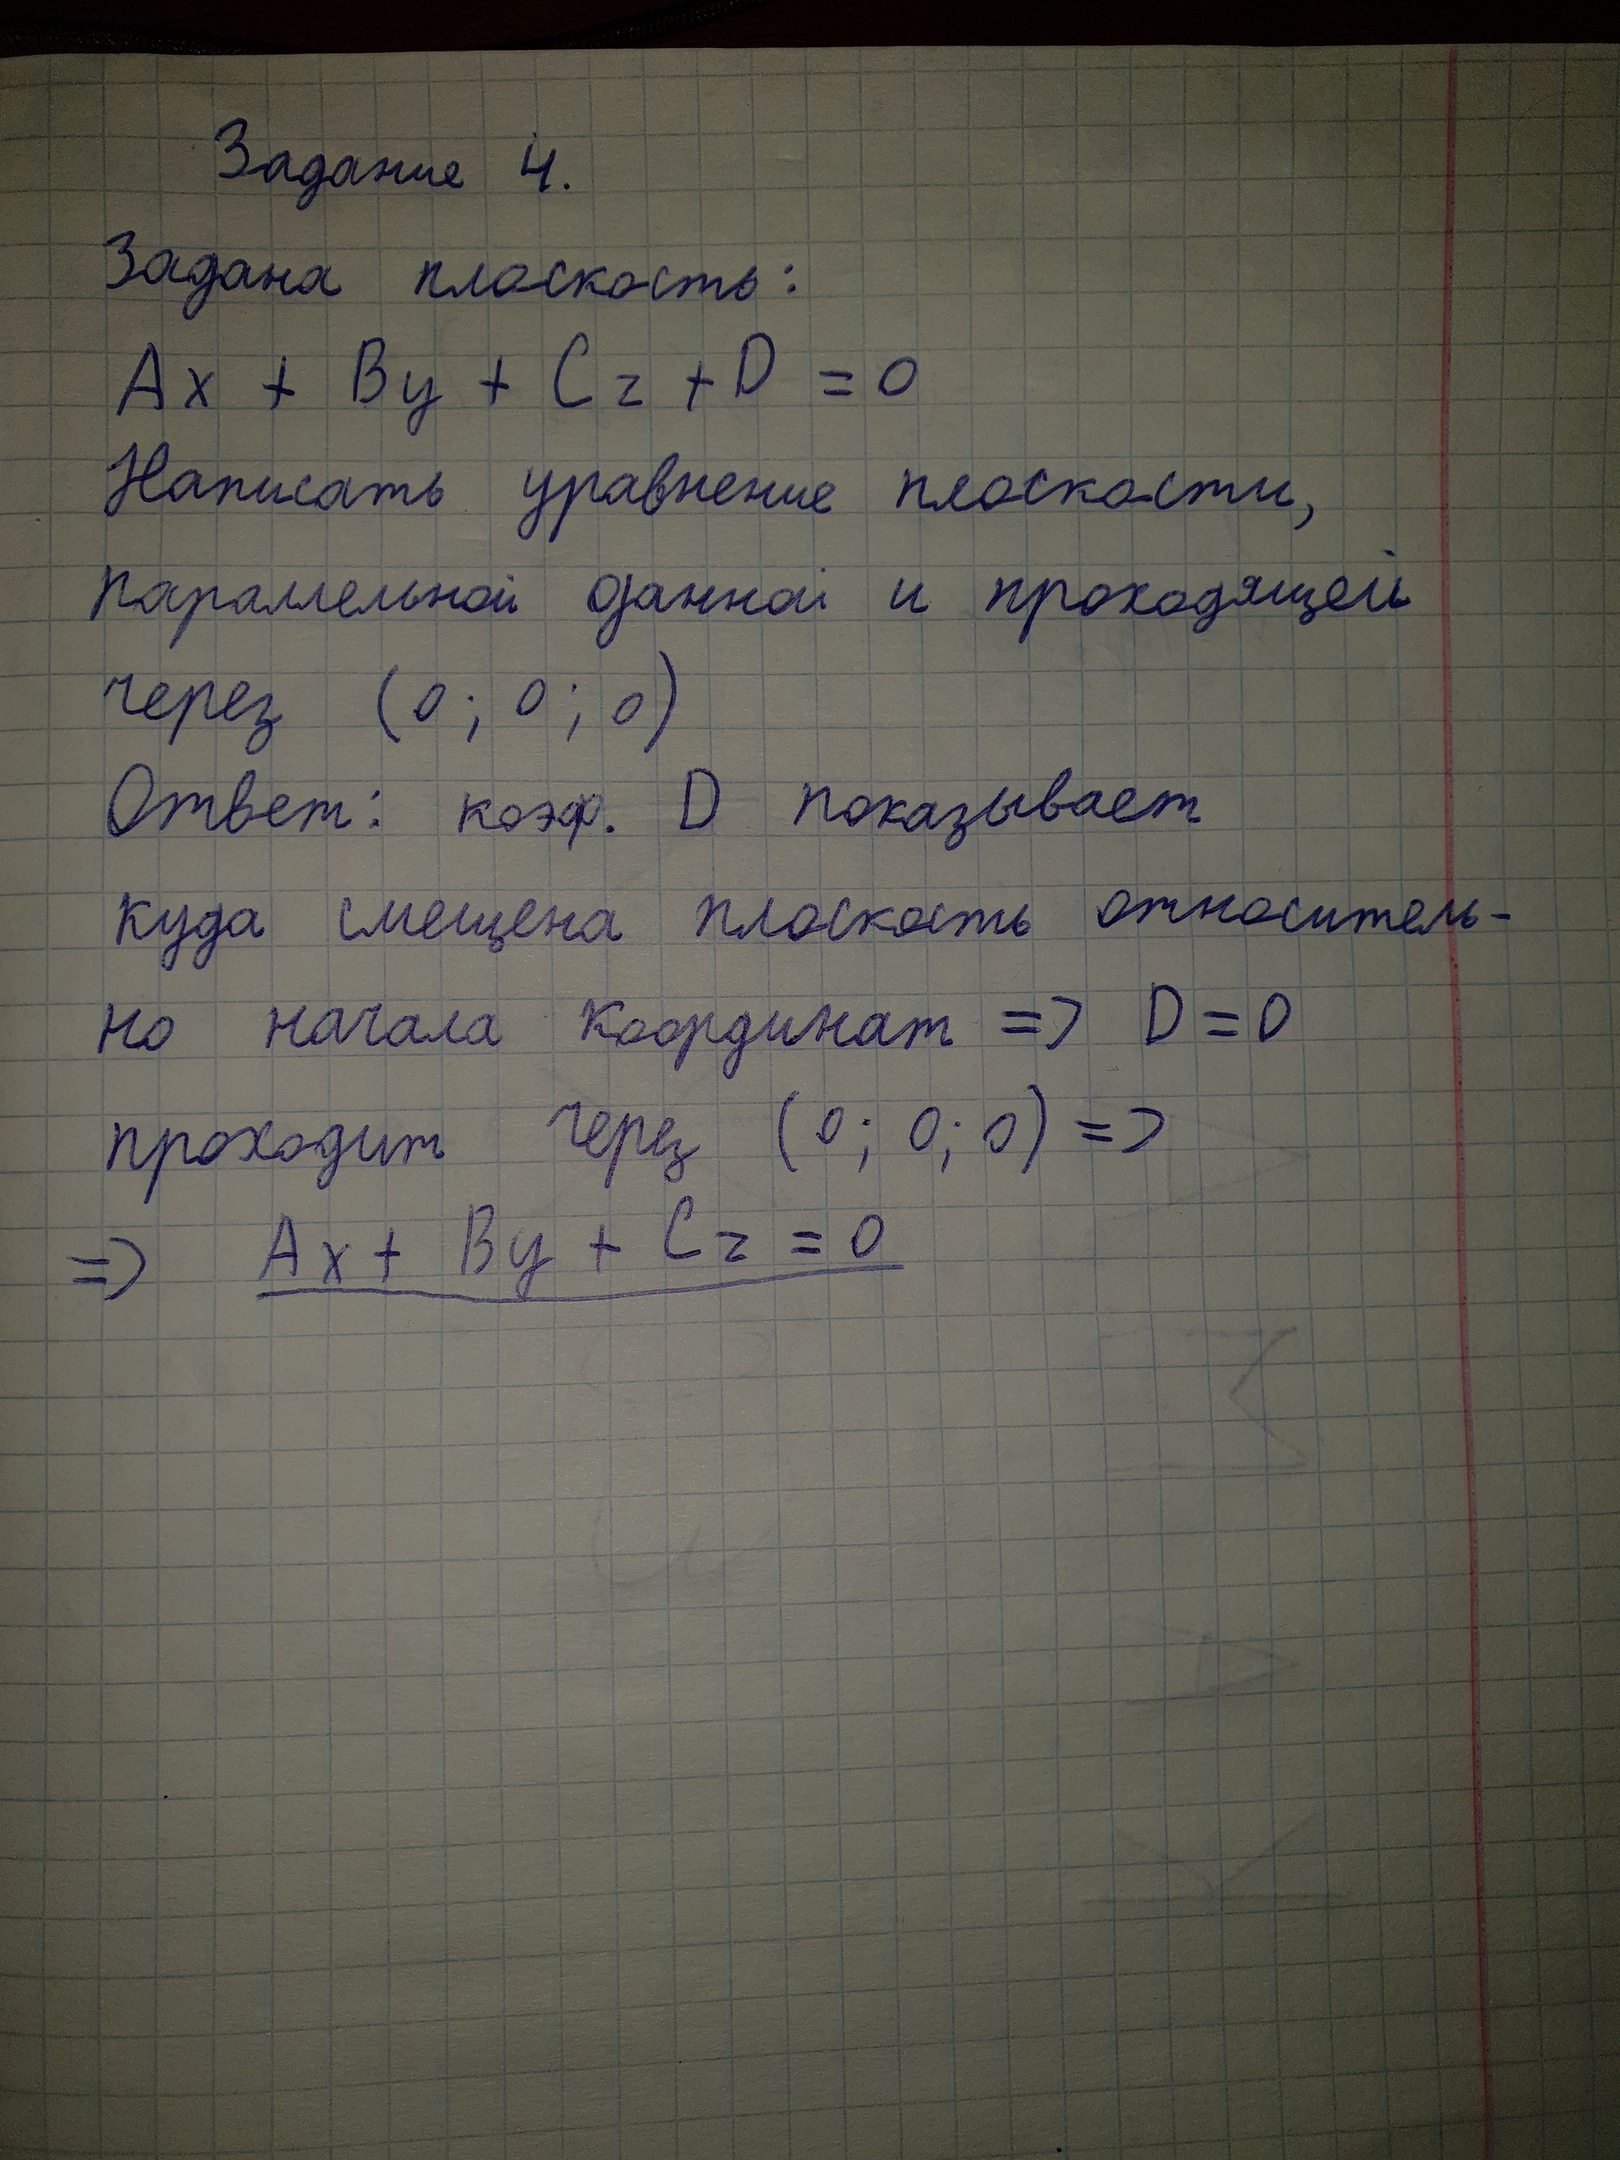 Задание 4.
Задана плоскость:
Ax + By + Cz + D = 0
Написать уравнение плоскости,
параллельной данной и проходящей
через (0; 0; 0)
Ответ: коэф. D показывает
куда смещена плоскость относитель-
но начала координат => D = 0
проходит через (0; 0; 0) =>
=> Ax + By + Cz = 0